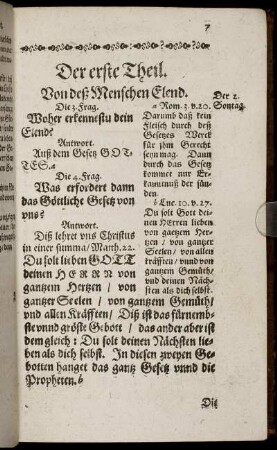 7
Der erste Theil.
Von deß Menschen Elend.
Die 3. Frag.
Woher erkennestu dein
Elend?
Antwort.
Auß dem Gesetz GOT-
TES.a
Die 4. Frag.
Was erfordert dann
das Göttliche Gesetz von
uns?
Antwort.
Diß lehret vns Christus
in einer summa/ Matth. 22.
Du solt lieben GOTT
deinen HERRN von
gantzem Hertzen / von
gantzer Seelen / von gantzem Gemüth/
vnd allen Kräfften/ Diß ist das fürnemb-
ste vnnd gröste Gebott / das ander aber ist
dem gleich: Du solt deinen Nächsten lie-
ben als dich selbst. In diesen zweyen Ge-
botten hanget das gantz Gesetz vnnd die
Propheten.b
a Rom. 3. v. 20.
Darumb daß kein
Fleisch durch deß
Gesetzes Werck
für ihm Gerecht
seyn mag. Dann
durch das Gesetz
kommet nur Er-
kantnuß der sün-
den.
b Luc. 10. v. 27.
Du solt Gott dei-
nen Herren lieben
von gantzem Her-
tzen / von gantzer
Seelen/ von allen
kräfften/ vund von
gantzem Gemüth/
vnd deinen Näch-
sten als dich selbst.
Der 2.
Sontag.
Diß